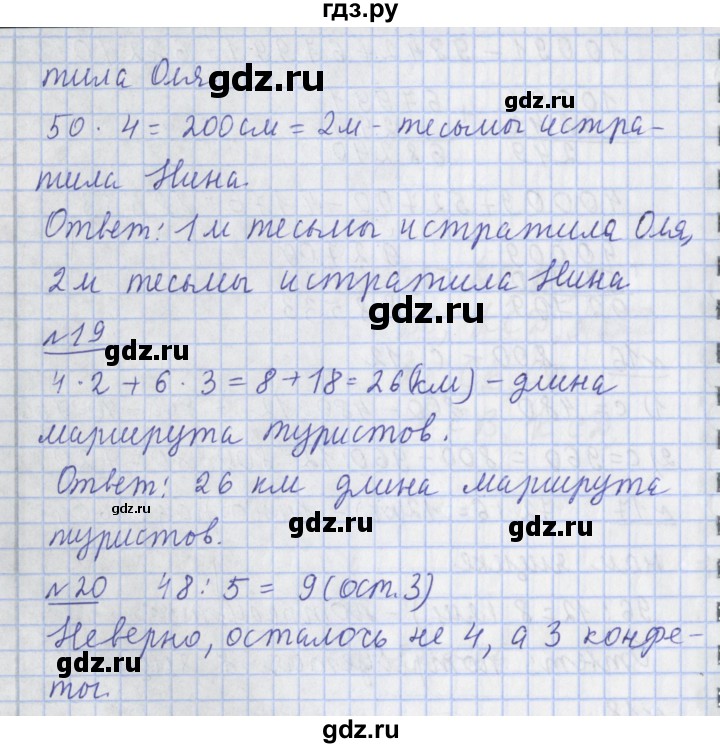 гдз.ру
тила Оля
gdz.ru
gdz.ru
50 · 4 = 200 см = 2 м - тесьмы истра-
тила Нина.
Ответ: 1 м тесьмы истратила Оля,
2 м тесьмы истратила Нина
gdz.ru
№19
gdz.ru
4 · 2 + 6 · 3 = 8 + 18 = 26 (км) - длина
маршрута туристов.
Ответ: 26 км длина маршрута
gdz.ru
gdz.ru
gdz.ru
туристов.
№20 48 : 5 = 9 (ост. 3)
Неверно, осталось не 4, а 3 конфе-
gdz.ru
gdz.ru
ты.
gdz.ru